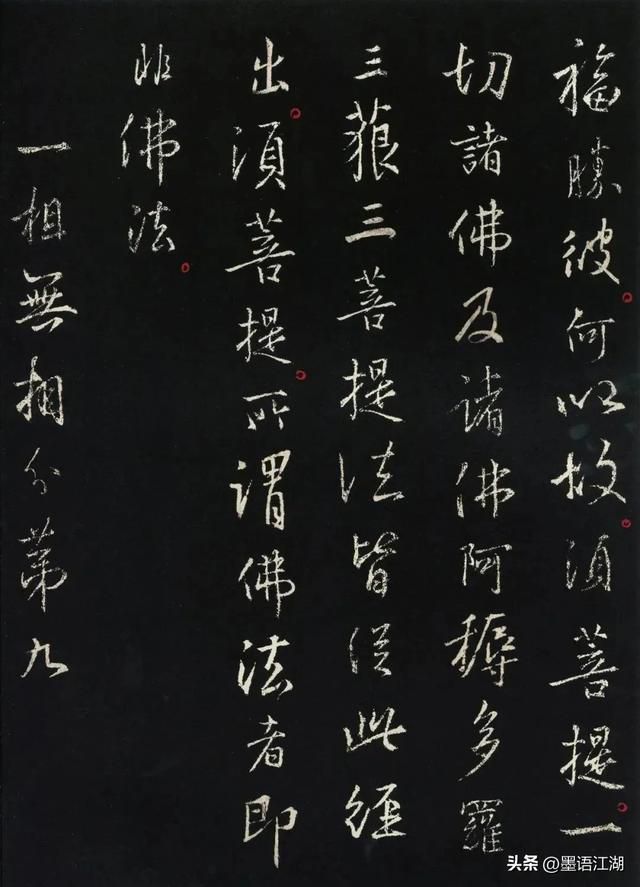 福勝彼何以故須菩提一
切諸佛及諸佛阿耨多羅
三藐三菩提法皆從此經
出須菩提所謂佛法者即
非佛法
一相無相分第九
头条@墨语江湖